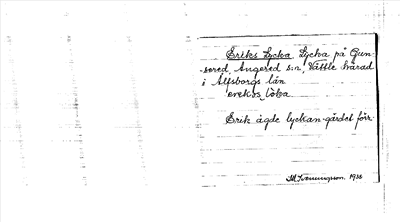 Eriks Lycka. Lycka på Gun-
nered Angered s:n, Vättle härad
i Älfsborgs län.
erekos
Erik ägde lyckan-gärdet förr.
1936